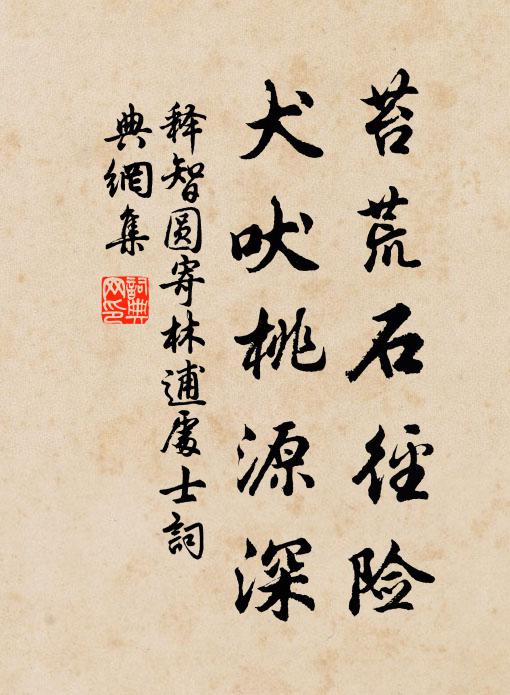 苔荒石径险
犬吠桃源深
释智圆寄林逋處士詞
典網集
詞典
网印